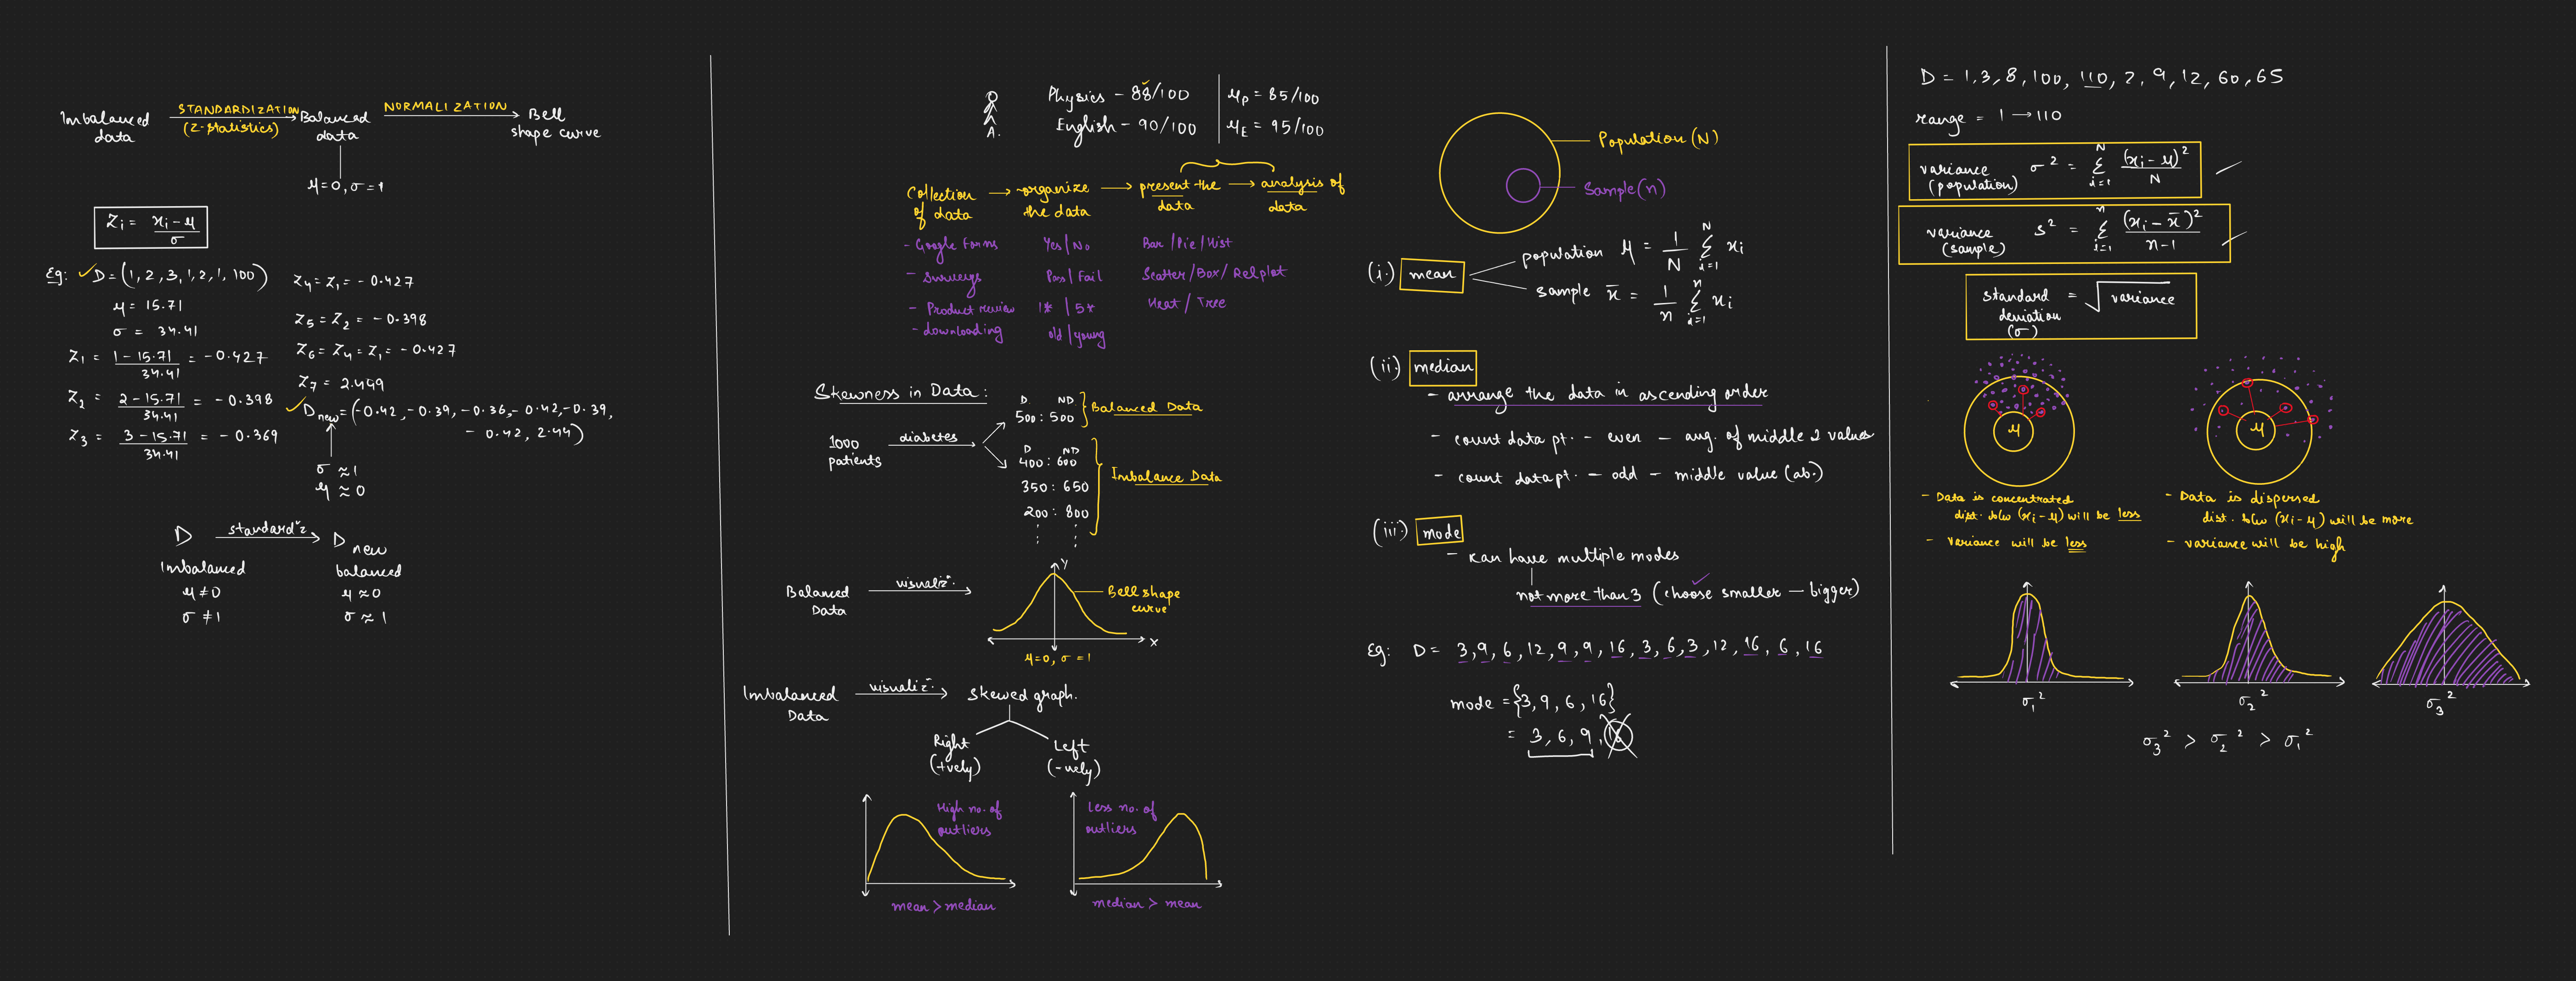 Imbalanced data
STANDARDIZATION
(Z-statistics)
Balanced data
NORMALIZATION
Bell shape curve
μ=0, σ=1
Zi = xi - μ / σ
Eg: D = (1, 2, 3, 1, 2, 1, 100)
μ = 15.71
σ = 34.41
Z1 = 1 - 15.71 / 34.41 = -0.427
Z2 = 2 - 15.71 / 34.41 = -0.398
Z3 = 3 - 15.71 / 34.41 = -0.369
Z4 = Z1 = -0.427
Z5 = Z2 = -0.398
Z6 = Z4 = Z1 = -0.427
Z7 = 2.449
D new = (-0.42, -0.39, -0.36, -0.42, -0.39,
-0.42, 2.44)
σ ≈ 1
μ ≈ 0
D
standard^n z
D new
Imbalanced
μ ≠ 0
σ ≠ 1
balanced
μ ≈ 0
σ ≈ 1
A.
Physics - 88/100
English - 90/100
μP = 85/100
μE = 95/100
Collection of data → organize the data → present the data → analysis of data
- Google Forms
- Surveys
- Product review
- downloading
Yes/No
Pass/Fail
1* | 5*
old/young
Bar/Pie/Hist
Scatter/Box/Relplot
Heat/Tree
Skewness in Data:
1000 patients
diabetes
D ND
500 : 500
Balanced Data
D ND
400 : 600
350 : 650
200 : 800
Imbalance Data
Balanced Data
visualiz^n
Y
X
Bell shape curve
μ=0, σ=1
Imbalanced Data
visualiz^n
skewed graph.
Right (+vely)
Left (-vely)
High no. of outliers
mean > median
Less no. of outliers
median > mean
Population (N)
Sample (n)
(i.) mean
population μ = 1/N Σ i=1 N xi
sample x̄ = 1/n Σ i=1 n xi
(ii) median
- arrange the data in ascending order
- count data pt. - even - avg. of middle 2 values
- count data pt. - odd - middle value (ab.)
(iii) mode
- can have multiple modes
not more than 3 (choose smaller - bigger)
Eg: D = 3, 9, 6, 12, 9, 9, 16, 3, 6, 3, 12, 16, 6, 16
mode = {3, 9, 6, 16}
= 3, 6, 9, 16
D = 1, 3, 8, 100, 110, 7, 9, 12, 60, 65
range = 1 → 110
variance (population) σ² = Σ i=1 N (xi - μ)² / N
variance (sample) s² = Σ i=1 n (xi - x̄)² / n-1
standard deviation (σ) = √variance
μ
μ
- Data is concentrated
dist. b/w (xi - μ) will be less
- variance will be less
- Data is dispersed
dist. b/w (xi - μ) will be more
- variance will be high
σ1²
σ2²
σ3²
σ3² > σ2² > σ1²